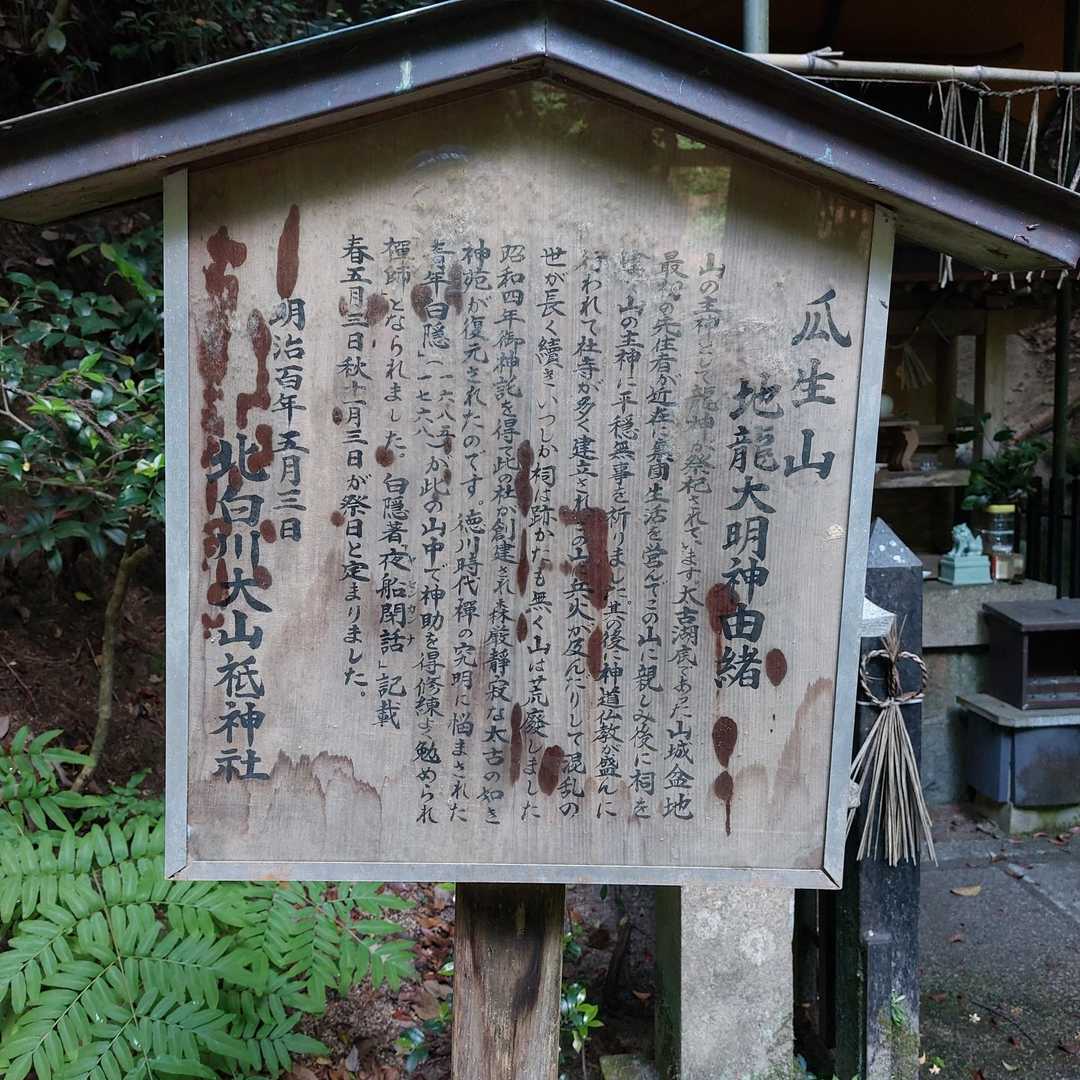 瓜生山
地龍大明神由緒
山の主神として龍神が祭祀されています太古湖底であった山城盆地
最初の先住者が近在に集団生活を営んでこの山に親しみ後に祠を
山の主神に平穏無事を祈りました其の後に神道仏教が盛んに
行われて社寺が多く建立されこの山に兵火が及んだりして混乱の
世が長く續きいつしか祠は跡かたも無く山は荒廢しました
昭和四年御神託を得て此の社が創建され森嚴靜寂な太古の如き
神苑が復元されたのです。徳川時代禪の究明に悩まされた
青年白隠(一六八五〜一七六八)が此の山中で神助を得修練よく勉められ
禪師となられました。白隠著「夜船閑話」記載
ヤセンカンナ
春五月三日秋十一月三日が祭日と定まりました。
明治百年五月三日
北白川大山祇神社